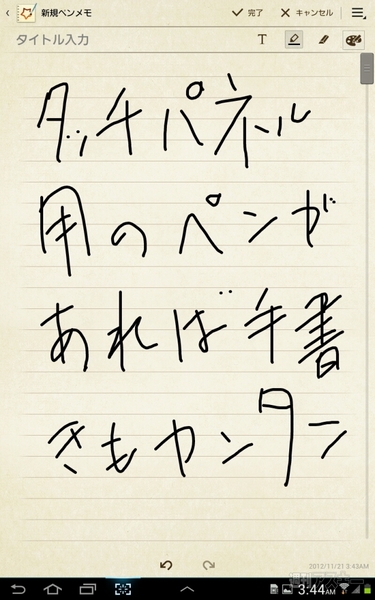 新規ペンメモ 完了 キャンセル
タイトル入力 T
タッチパネル
用のペンが
あれば手書
きもカンタン
2012/11/21 3:43AM
週刊アスキー
3:44AM